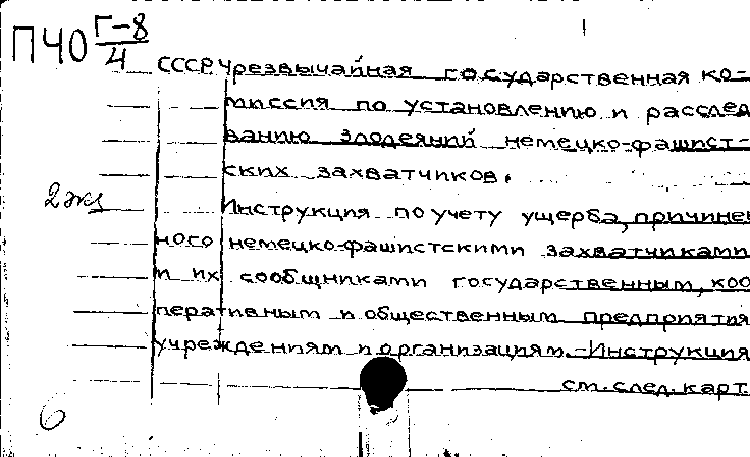 ПЧО Г-8/4
СССР. Чрезвычайная государственная ко-
миссия по установлению и расслед
ванию злодеяний немецко-фашист-
ских захватчиков.
2 экз
Инструкция по учету ущерба, причинен
ного немецко-фашистскими захватчиками
и их сообщниками государственным, коо
перативным и общественным предприятия
учреждениям и организациям. - Инструкция
см. след. карт.
6